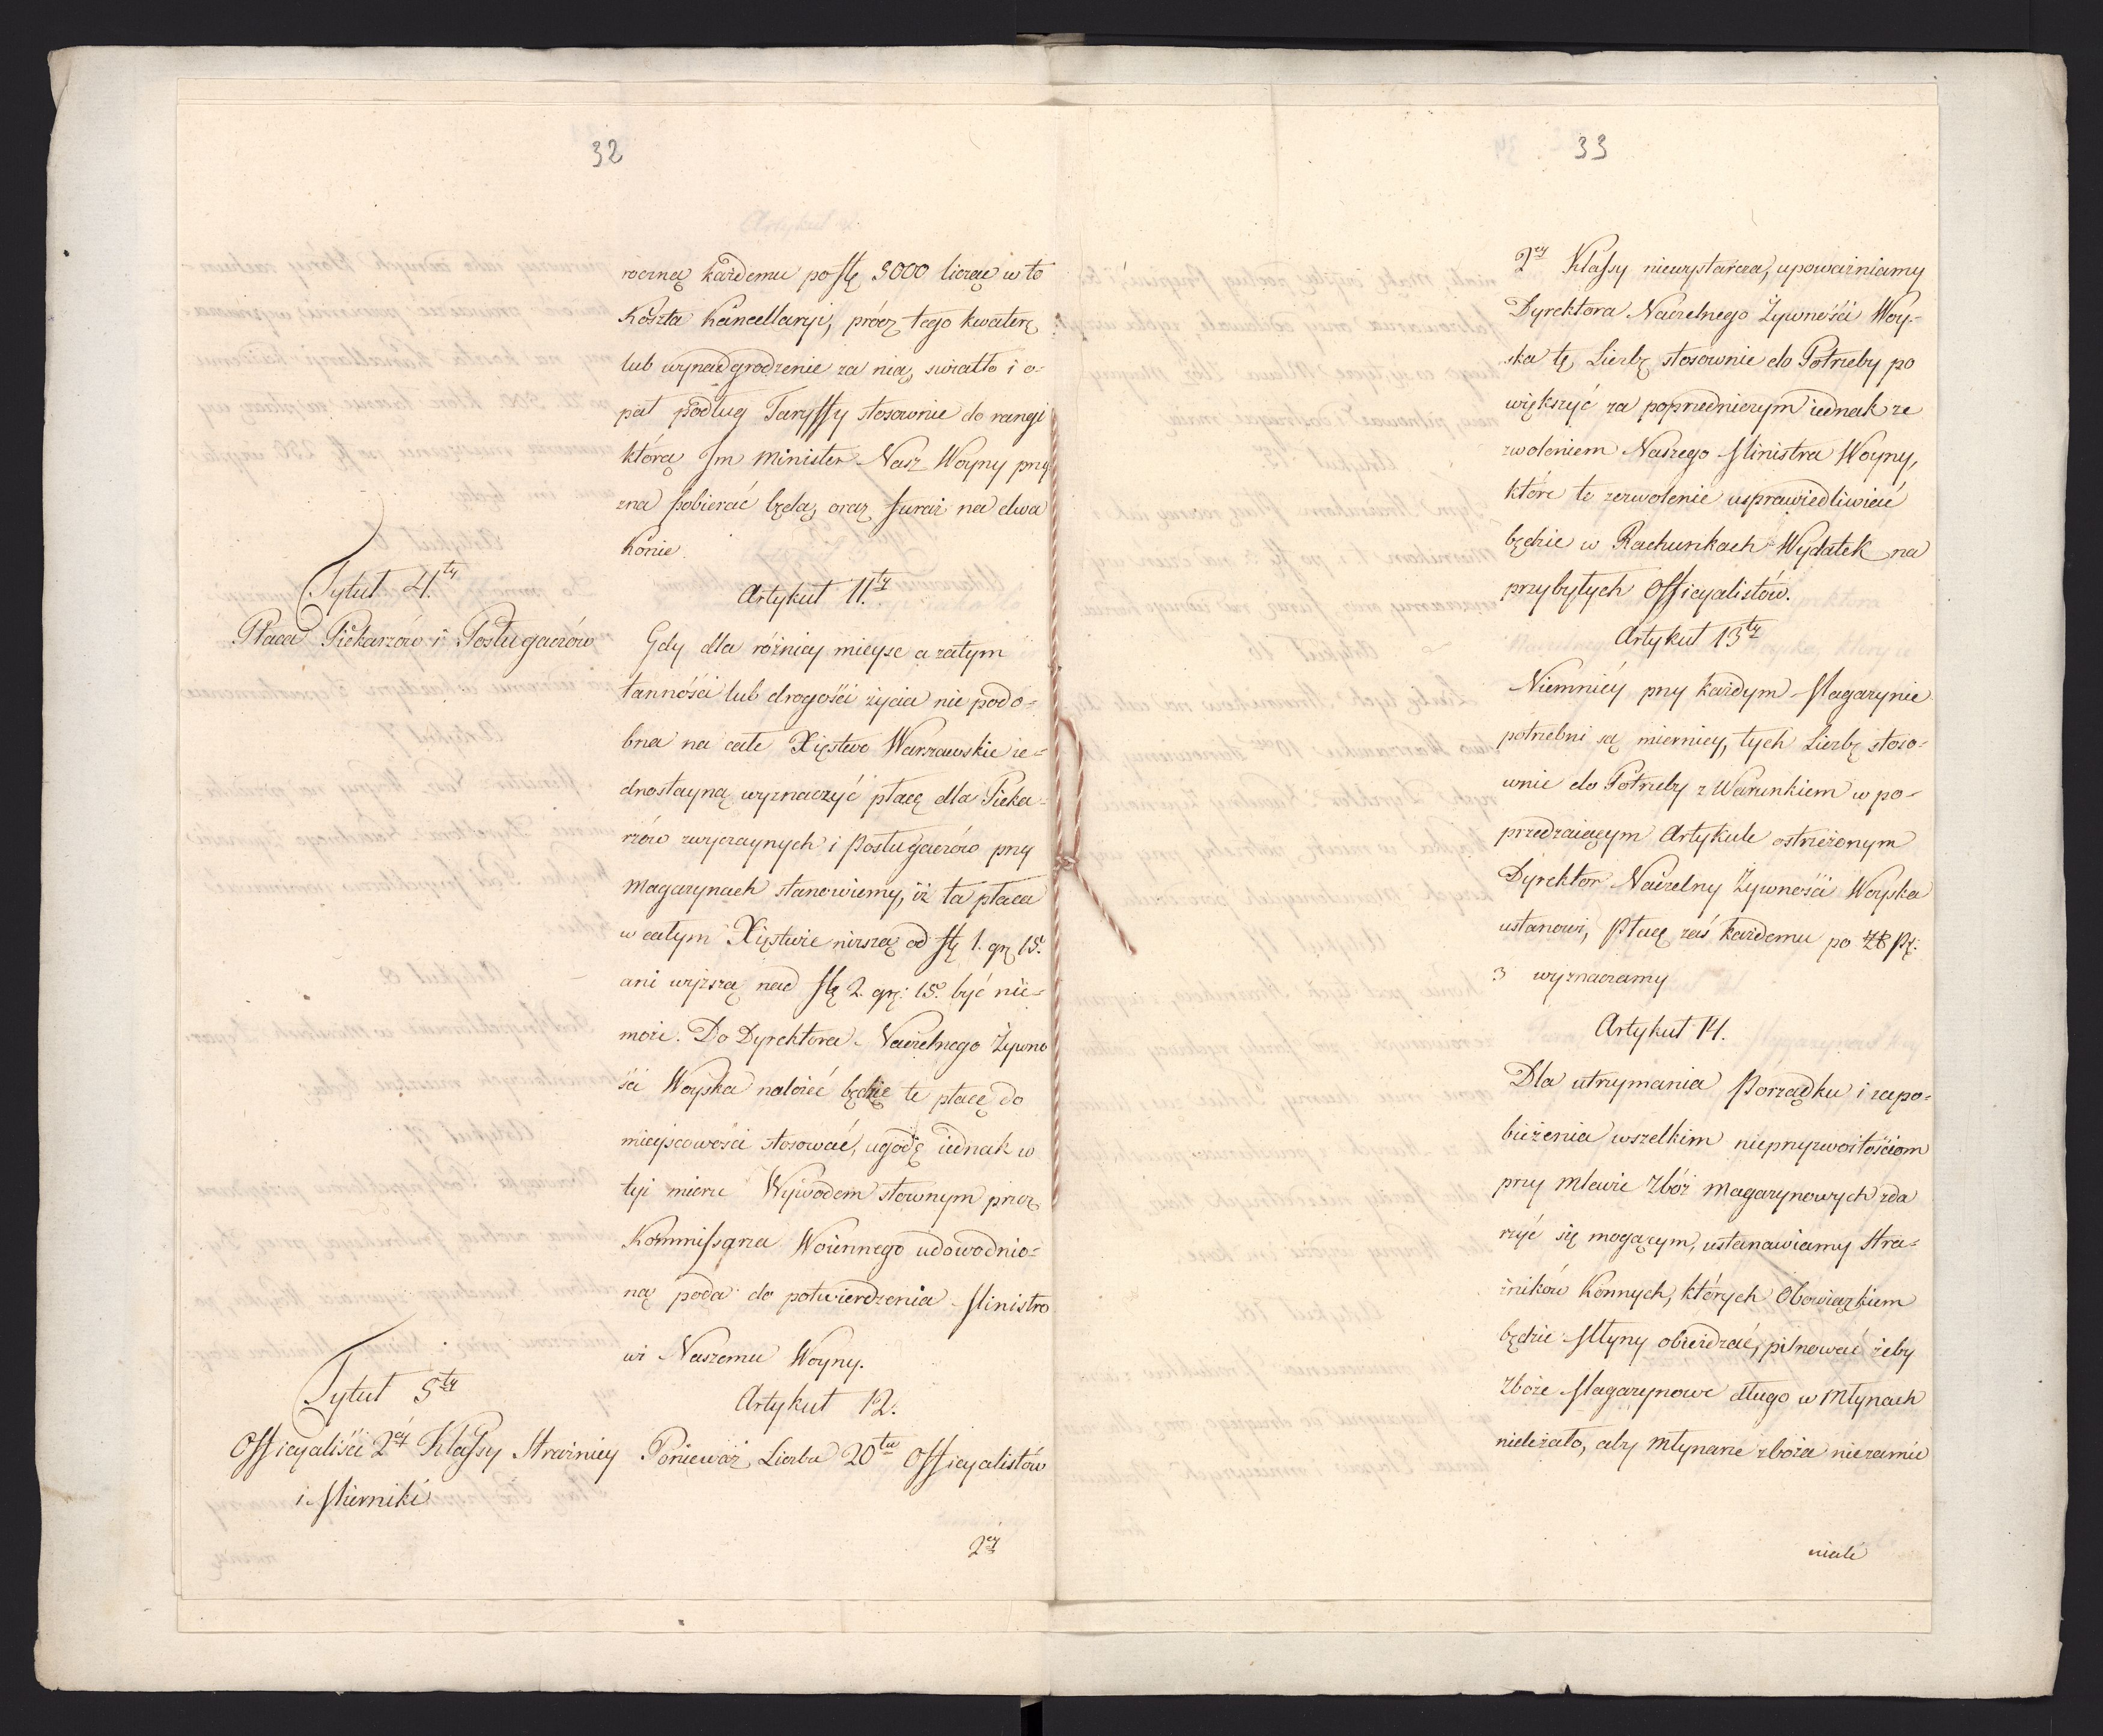 32
roczną każdemu po Złł 5000 licząc w to
Koszta Kancellaryi, prócz tego kwaterę
lub wynadgrodzenie za nią, swiatło i o-
pał podług Taryffy stosownie do rangi
którą Im Minister Nasz Woyny przy
zna pobierać będą, oraz furaż na dwa
konie.
Tytuł 4ty
Płaca Piekarzów i Posługaczów
Artykuł 11ty
Gdy dla różnicy mieysc a zatym
tanności lub drogości życia nie podo-
bna na całe Xięstwo Warszawskie ie-
dnostayną wyznaczyć płacę dla Pieka-
rzów zwyczaynych i Posługaczów przy
Magazynach stanowiemy, iż ta płaca
w całym Xięstwie niższą od Złł 1. gr 15.
ani wyższą nad Złł 2. gr: 15. być nie-
może. Do Dyrektora Naczelnego Żywno
ści Woyska należeć będzie te płacę do
mieyscowości stosować, ugodę iednak w
tyi mierze Wywodem słownym przez
Kommissarza Woiennego udowodnio-
ną poda do potwierdzenia Ministro
wi Naszemu Woyny.
Tytuł 5ty
Officyaliści 2éy Klassy Strażnicy
i Mierniki
Artykuł 12.
Ponieważ Liczba 20tu Officyalistów
2éy
33
2éy Klassy niewystarcza, upoważniamy
Dyrektora Naczelnego Żywności Woy-
ska tę Liczbę stosownie do Potrzeby po
większyć za poprzedniczym iednak ze
zwoleniem Naszego Ministra Woyny,
które te zezwolenie usprawiedliwiać
będzie w Rachunkach Wydatek na
przybyłych Officyalistów.
Artykuł 13ty
Niemniéy przy każdym Magazynie
potrzebni są miernicy, tych Liczbę stoso-
wnie do Potrzeby z Warunkiem w po-
przedzaiącym Artykule ostrzeżonym
Dyrektor Naczelny Żywności Woyska
ustanowi, Płacę zaś każdemu po
3 wyznaczamy
Artykuł 14.
Dla utrzymania Porządku i zapo-
bieżenia wszelkim nieprzyzwoitościom
przy mlewie Zbóż Magazynowych zda
rzyć się mogącym, ustanawiamy Stra-
żników Konnych, których Obowiązkiem
będzie Młyny obieżdzać, pilnować żeby
Zboże Magazynowe długo w Młynach
nieleżało, aby Młynarze zboża niezamie
niali